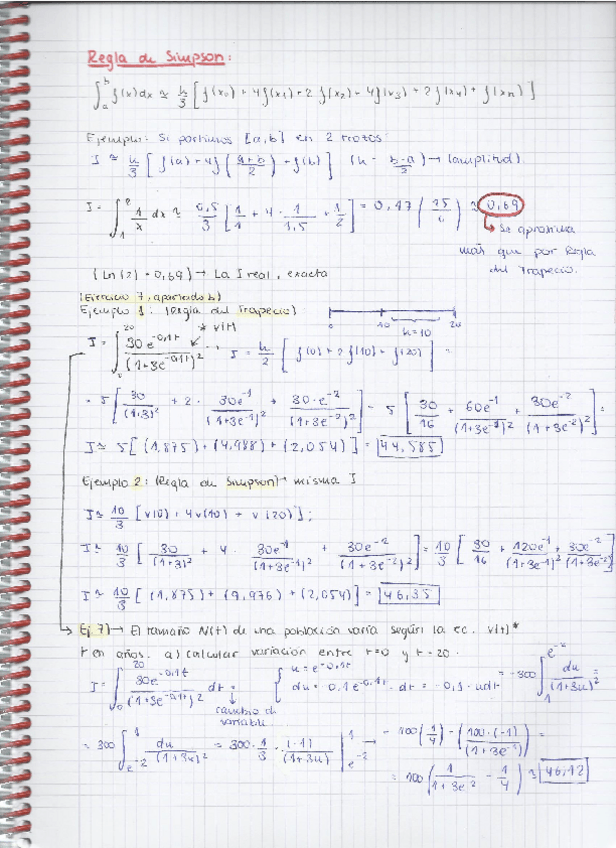 Regla de Simpson:
∫_a^b f(x)dx ≃ h/3 [ f(x₀) + 4f(x₁) + 2 f(x₂) - 4f(x₃) + 2 f(x₄) + f(xₙ) ]
Ejemplo: Si partimos [a,b] en 2 trozos:
I ≃ h/3 [ f(a) + 4f( (a+b)/2 ) + f(b) ] (h = (b-a)/2) → (amplitud)
I = ∫_1^2 1/x dx ≃ 0,5/3 [ 1/1 + 4 · 1/1,5 + 1/2 ] = 0,17 ( ) ≃ 0,69
↳ Se aproxima
más que por Regla
del Trapecio.
(Ln(2) = 0,69) → La I real, exacta
(Ejercicio 7, apartado b)
Ejemplo 1: (Regla del Trapecio):
0 10 20
h=10
I = ∫_0^20 30e^-0,1t / (1+3e^-0,1t)² * v(t) I = h/2 [ f(0) + 2 f(10) + f(20) ] =
= 5 [ 30/(1+3)² + 2 · 30e^-1/(1+3e^-1)² + 30·e^-2/(1+3e^-2)² ] = 5 [ 30/16 + 60e^-1/(1+3e^-1)² + 30e^-2/(1+3e^-2)² ] =
I ≃ 5 [ (1,875) + (4,988) + (2,054) ] = 44,585
Ejemplo 2: (Regla de Simpson) → misma I
I ≃ 10/3 [ v(0) + 4v(10) + v(20) ];
I ≃ 10/3 [ 30/(1+3)² + 4 · 30e^-1/(1+3e^-1)² + 30e^-2/(1+3e^-2)² ] = 10/3 [ 30/16 + 120e^-1/(1+3e^-1)² + 30e^-2/(1+3e^-2)² ]
I ≃ 10/3 [ (1,875) + (9,976) + (2,054) ] = 46,35
Ej 7) → El tamaño N(t) de una población varía según la ec. v(t)*
t en años. a) calcular variación entre t=0 y t=20.
I = ∫_0^20 30e^-0,1t / (1+3e^-0,1t)² dt = { u = e^-0,1t
du = 0,1e^-0,1t · dt = -0,1 · udt = -300 ∫_1^e^-2 du/(1+3u)² =
cambio de
variable
= 300 ∫_e^-2^1 du/(1+3u)² = 300 · 1/3 · (-1)/(1+3u) |_e^-2^1 → - 100(1/4) - ( 100·(-1)/(1+3e^-2) ) =
= 100 ( 1/(1+3e^-2) - 1/4 ) ≃ 46,12